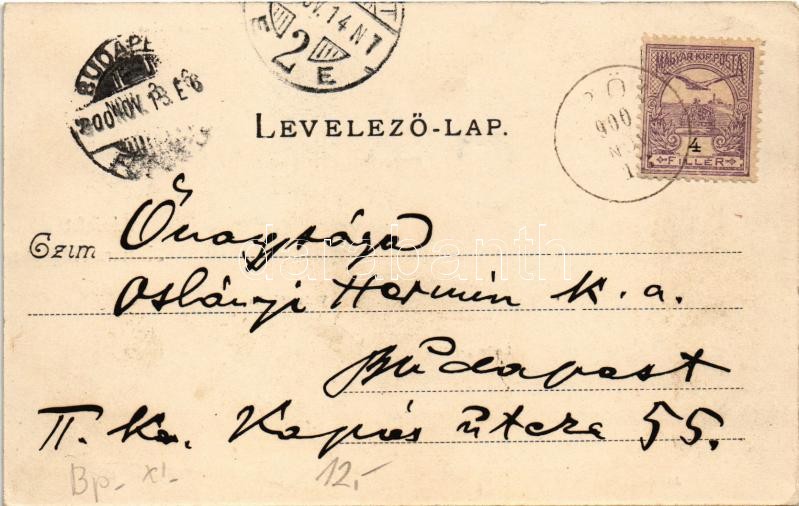 BUDAPE
900 NOV. 13. E 6
NOV. 14 N 7
2
E E
MAGYAR KIR. POSTA
4
FILLÉR
900
LEVELEZŐ-LAP.
Czim Őnagysága
Oslányi Hermin k. a.
Budapest
II. ker. Kapás utcza 55.
Bp- XI-
12.-
darabanth